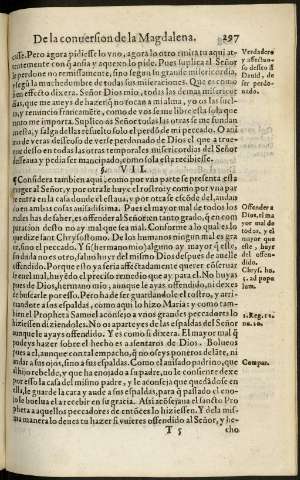 De la conuersion de la Magdalena. 297
cisse. Pero agora pidiesse lo vno, agora lo otro mira tu aqui
tentamente con q̃ ansia y aquexo lo pide. Pues suplica al Señor
le perdone no remissamente, sino segun su grande misericordia,
y segũ la muchedumbre de todas sus miseraciones. Que es como
si en effecto dixera. Señor Dios mio, todas las demas
das, que me aueys de hazer si q̃ no tocan a mi alma, yo os las suelto,
y renuncio francamẽte, como de vos se me libre esta sola que
tanto me importa. Suplico os Señor
nestra, y salga della resuelto solo el perdõ de mi peccado. O ani
mo de veras desseoso de verse perdonado de Dios el que a trueque
desso en todas las otras temporales misericordias del Señor
desseaua y pedia ser
§. VII.
Considera tambien aqui, como por vna parte se presenta esta
muger al Señor, y por otra le huye el rostro: y como por vna par
te entra en la casa donde el estaua, y por otra se escõde del, auien
do en ambas cosas auiso. Pues el mayor mal de todos los
males has de saber, es offender al Señor en tanto grado, q̃ en com
puration desto no ay mal que sea mal. Conforme a lo qual es lo
que dize sant Chrysostomo. De los humanos ningun mal es gra
ue, sino el peccado. Y si hermano mio alguno ay mayor q̃ este,
sin duda no es otro, saluo huyr del mismo Dios despues de auelle
offendido. Porque esto ya seria affectadamente querer
tan fiero mal, huyẽdo el precioso remedio que ay para el. No huyas
pues de Dios, hermano mio, aunque le ayas offendido, ni dexes
de buscarle por esso. Pero ha de ser guardandole el rostro, y arri
mandote a sus espaldas, como aqui lo hizo Maria: y como tam
bien el Propheta Samuel aconsejo a vnos grandes peccadores lo
hiziessen diziendoles. No os aparteys de las espaldas del Señor
aunque le ayays offendido. Y es como si dixera. El mayor mal q̃
podeys hazer sobre el hecho es ausentaros de Dios. Bolueos
pues a el, aunque con tal empacho, q̃ no oseys poneros delãte, ni
andar a sus ojos, sino a sus espaldas. Como al
si hijo rebelde, y que ha enojado a su padre, no le consiente dexe
por esso la casa del mismo padre, y le aconseja que quedãdose en
ella, le guarde la cara y aude a sus espaldas, para q̃ passado el eno
jo le buelua el a recebir en su gracia. Assi acõsejaua el sancto Pro
pheta a aquellos peccadores de entõces lo hiziessen. Y dela mis-
ma manera lo deues tu hazer si vuieres offendido al Señor, y he-
T 5 cho
Verdadero
y affectuo-
so desseo d̃
Dauid, de
ser perdo-
nado.
Offender a
Dios, el ma
yor mal de
todos, y el
mayor que
este, huyr
del offen-
dido.
Chrys. ho.
5. ad popu
lum.
1. Reg. 12.
nu. 20.
Compar.